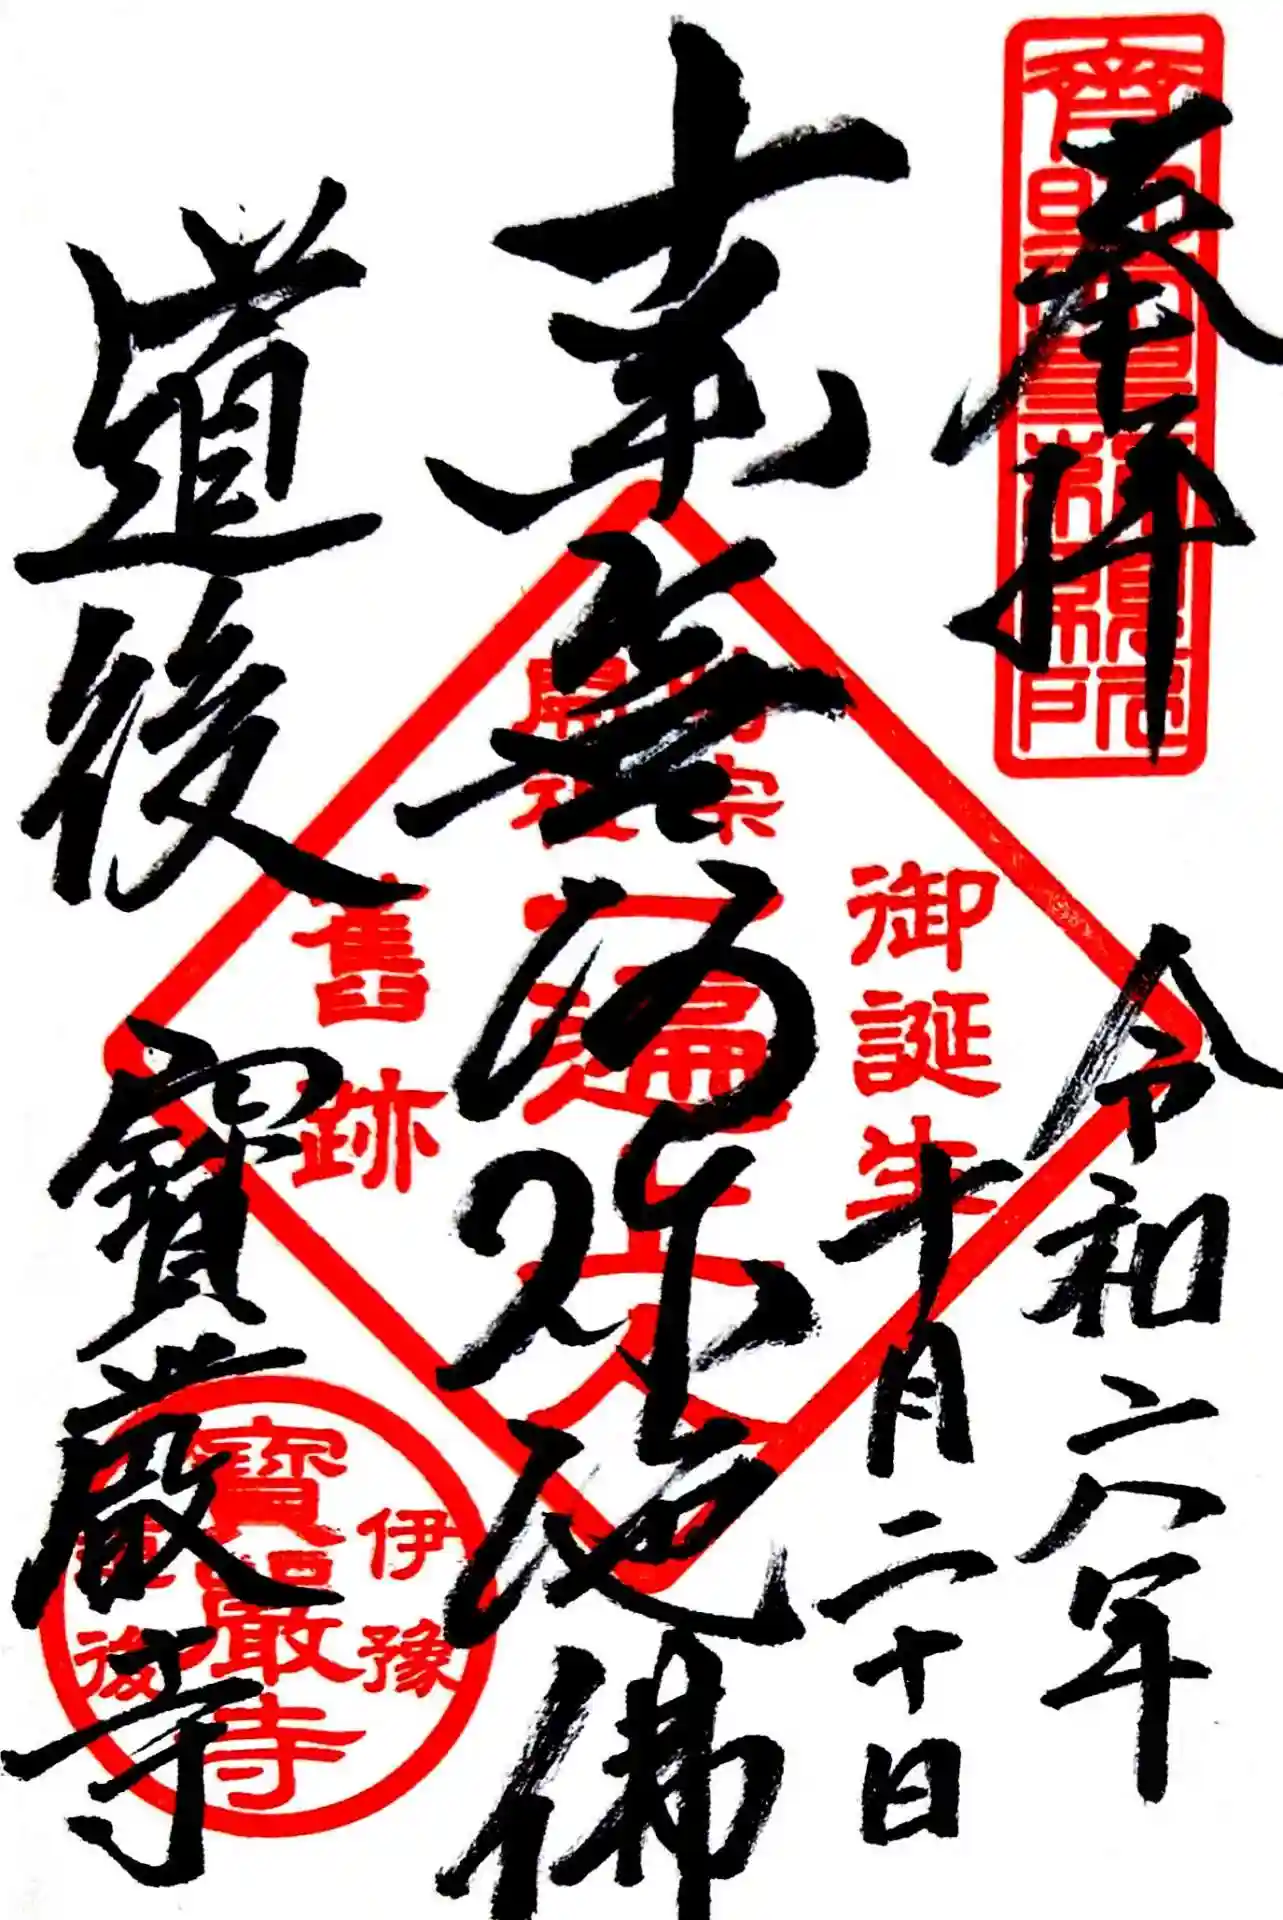 奉拝
令和六年
十月二十日
南無阿弥陀佛
道後 寶嚴寺
御誕生
時宗
開祖
一遍上人
舊跡
伊豫
道後
寶嚴寺